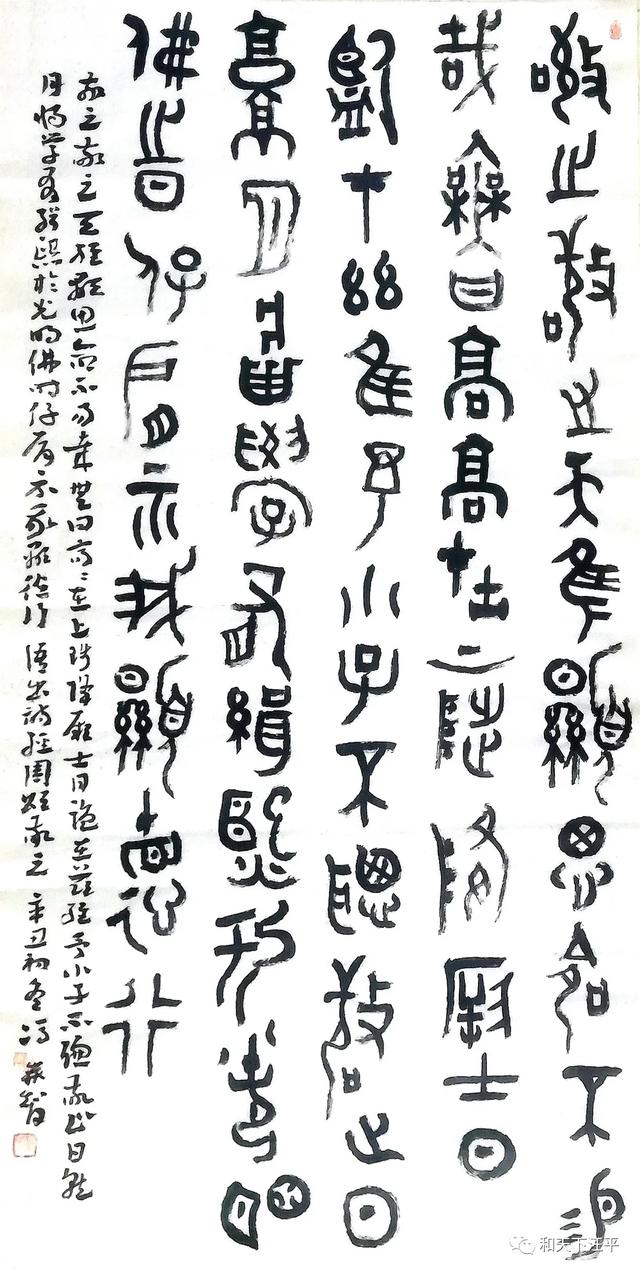 敬之敬之天維顯思命不易
哉無曰高高在上陟降厥士日
監在茲維予小子不聰敬止日
就月將學有緝熙于光明
佛時仔肩示我顯德行
敬之敬之天維顯思命不易哉無曰高〻在上陟降厥士日監在茲維予小子不聰敬止日就
月將學有緝熙於光明佛時仔肩示我顯德行 語出詩經周頌敬之 辛丑初冬 馮
和天下汪平